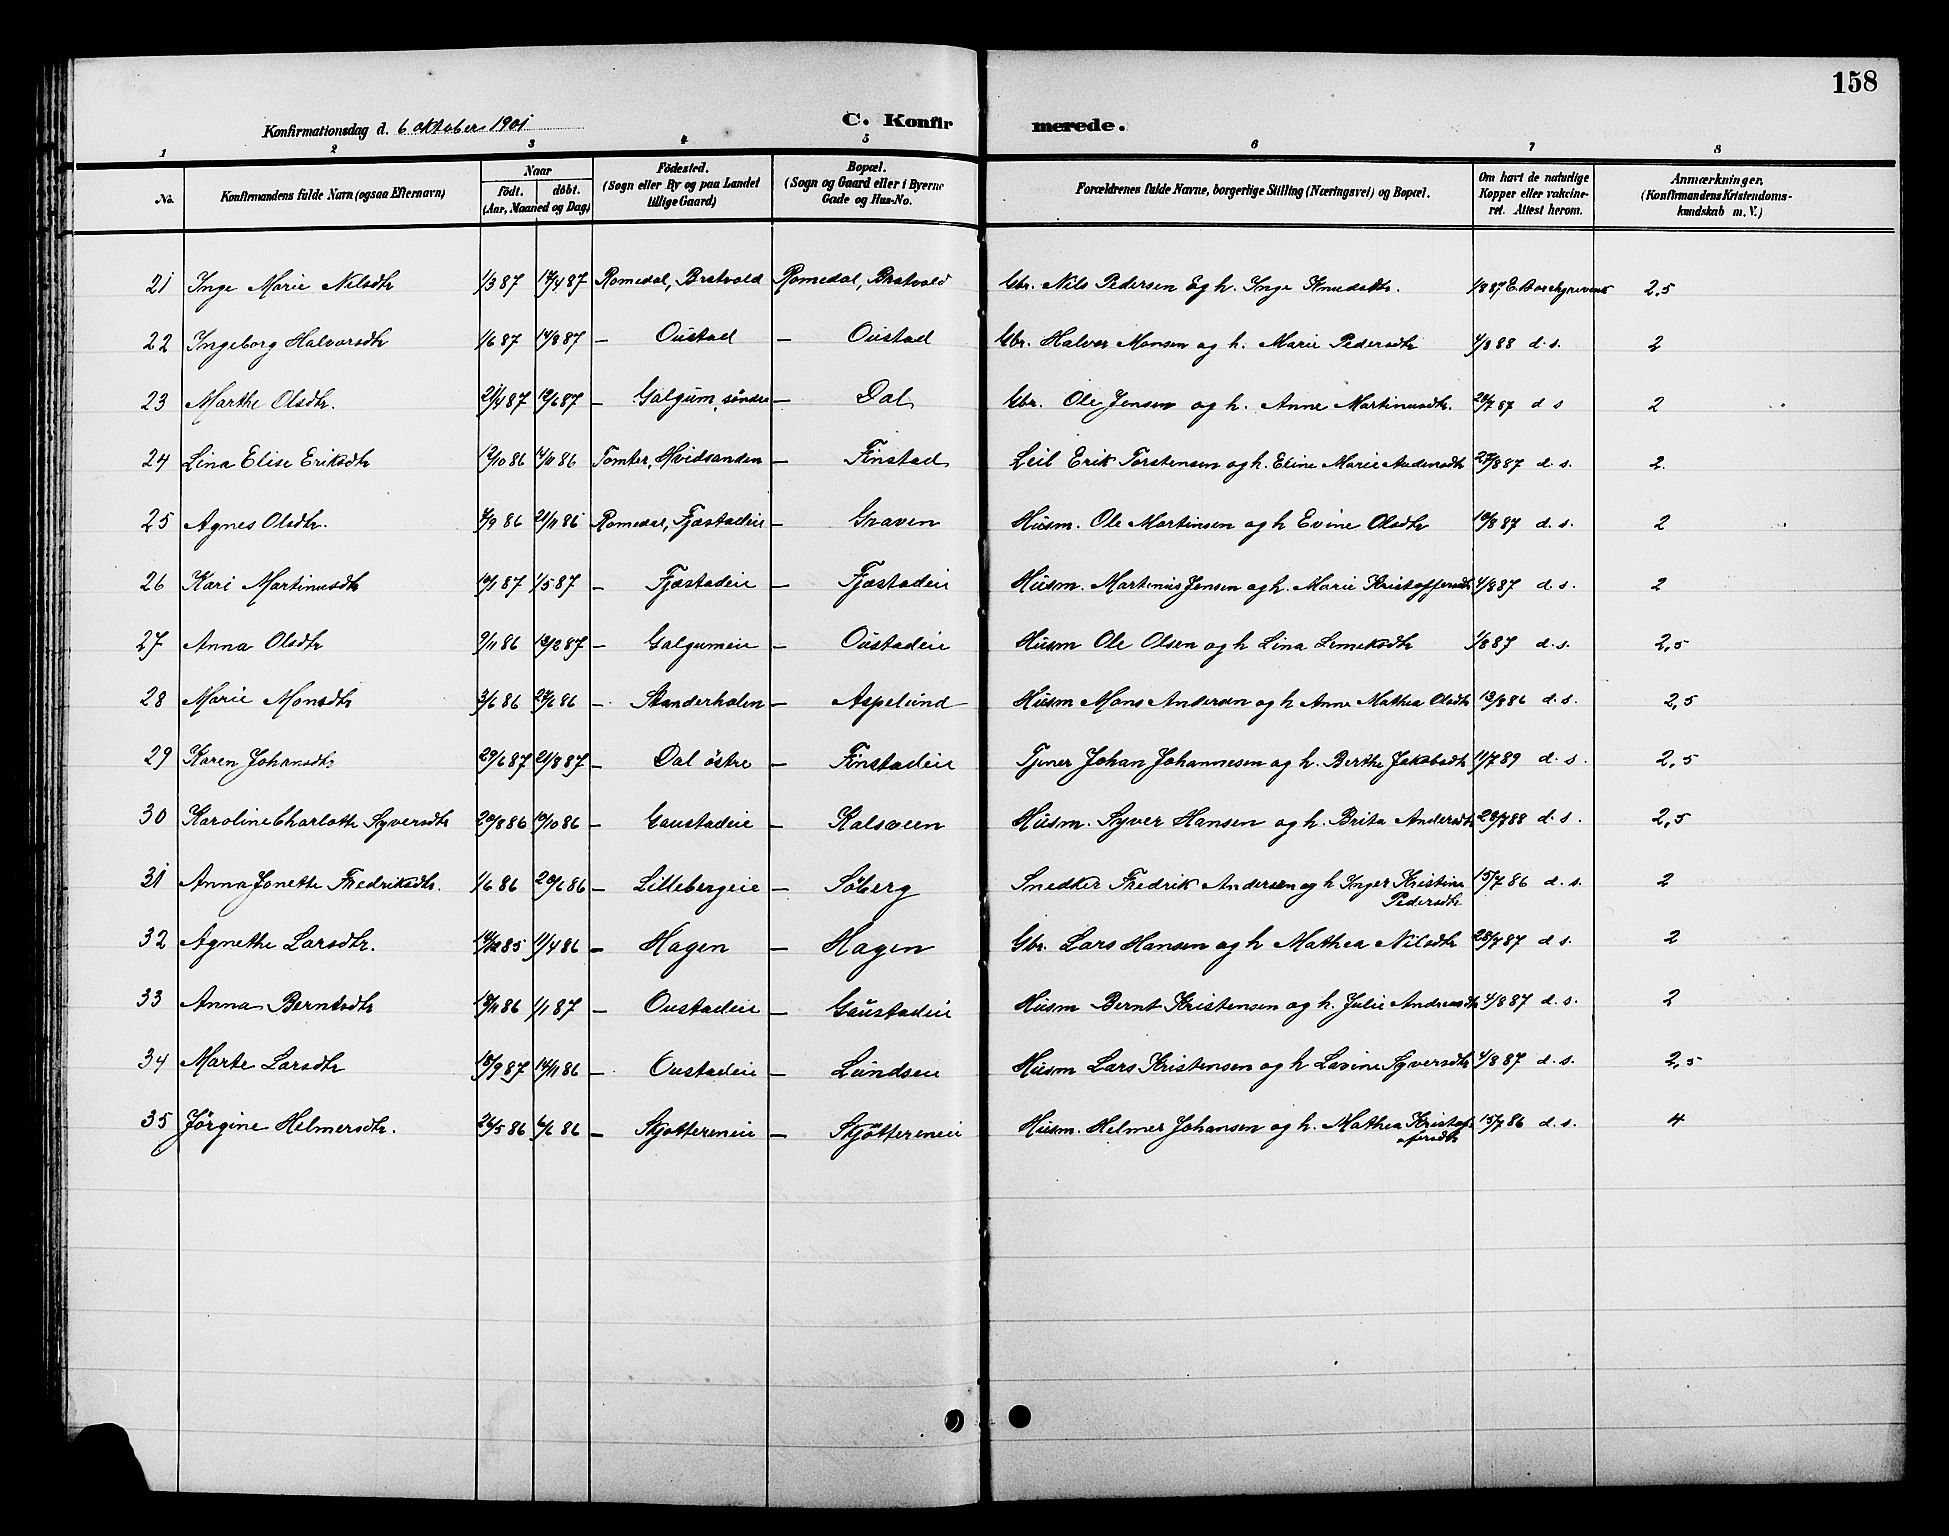 158
Konfirmationsdag d. 6 oktober 1901 C. Konfir merede.
1 2 3 4 5 6 7 8
No. Konfirmandens fulde Navn (ogsaa Efternavn) Naar født. døbt. (Aar, Maaned og Dag) Fødested. (Sogn eller By og paa Landet tillige Gaard) Bopæl. (Sogn og Gaard eller i Byerne Gade og Hus-No. Forældrenes fulde Navne, borgerlige Stilling (Næringsvei) og Bopæl. Om havt de naturlige Kopper eller vakcineret. Attest herom. Anmærkninger, (Konfirmandens Kristendomskundskab m. V.)
21 Inge Marie Nilsdtr 1/3 87 17/4 87 Romedal, Bratvold Romedal, Bratvold Gbr. Nils Pedersen og h. Inge Knudsdtr. 1/8 87 2,5
22 Ingeborg Halvorsdtr 1/6 87 14/8 87 – Oustad – Oustad Gbr. Halvor Monsen og h. Marie Pedersdtr 4/8 88 d. s. 2
23 Marthe Olsdtr. 21/4 87 12/6 87 – Galgum, søndre – Dal Gbr. Ole Jensen og h. Anne Martinusdtr. 28/7 87 d s 2
24 Lina Elise Eriksdtr 12/10 86 14/11 86 Tomter, Hvidsanden – Finstad Leil Erik Torstensen og h. Eline Marie Audensdtr 27/8 87 d. s. 2
25 Agnes Olsdtr. 7/9 86 21/11 86 Romedal, Fjæstadeie – Graven Husm. Ole Martinsen og h Evine Olsdtr 19/8 87 d. s. 2
26 Kari Martinusdtr 10/1 87 1/5 87 – Fjæstadeie – Fjæstadeie Husm. Martinus Jensen og h. Marie Kristoffersdtr 4/8 87 d. s. 2
27 Anna Olsdtr 9/11 86 13/2 87 – Galgumeie – Oustadeie Husm Ole Olsen og h Lina Lemeksdtr 1/8 87 d. s. 2,5
28 Marie Monsdtr 3/6 86 27/6 86 – Standerholen – Aspelund Husm Mons Andersen og h Anne Mathea Olsdtr 13/8 86 d. s. 2,5
29 Karen Johansdtr 29/6 87 21/8 87 – Dal østre – Finstadeie Tjener Johan Johannesen og h. Berthe Jakobsdtr 11/7 89 d. s. 2,5
30 Karoline Charlotte Syversdtr 20/8 86 10/10 86 – Gaustadeie – Kalsveen Husm. Syver Hansen og h. Brita Andersdtr 28/7 88 d. s. 2,5
31 Anna Jonette Fredriksdtr. 1/6 86 20/6 86 – Lillebergeie – Søberg Snedker Fredrik Andersen og h Inger Kristine Pedersdtr 15/7 86 d. s. 2
32 Agnethe Larsdtr. 14/12 85 11/4 86 – Hagen – Hagen Gbr. Lars Hansen og h Mathea Nilsdtr 28/7 87 d s. 2
33 Anna Berntsdtr 13/11 86 1/1 87 – Oustadeie – Gaustadeie Husm Bernt Kristensen og h. Julie Andreasdtr 4/8 87 d. s. 2
34 Marte Larsdtr 18/9 87 14/11 86 – Oustadeie – Lundseie Husm Lars Kristensen og h Lovine Syversdtr 4/8 87 d. s. 2,5
35 Jørgine Helmersdtr. 26/5 86 6/6 86 – Skjøttereneie – Skjøttereneie Husm. Helmer Johansen og h. Mathea Kristoffersdtr 15/7 86 d. s. 4